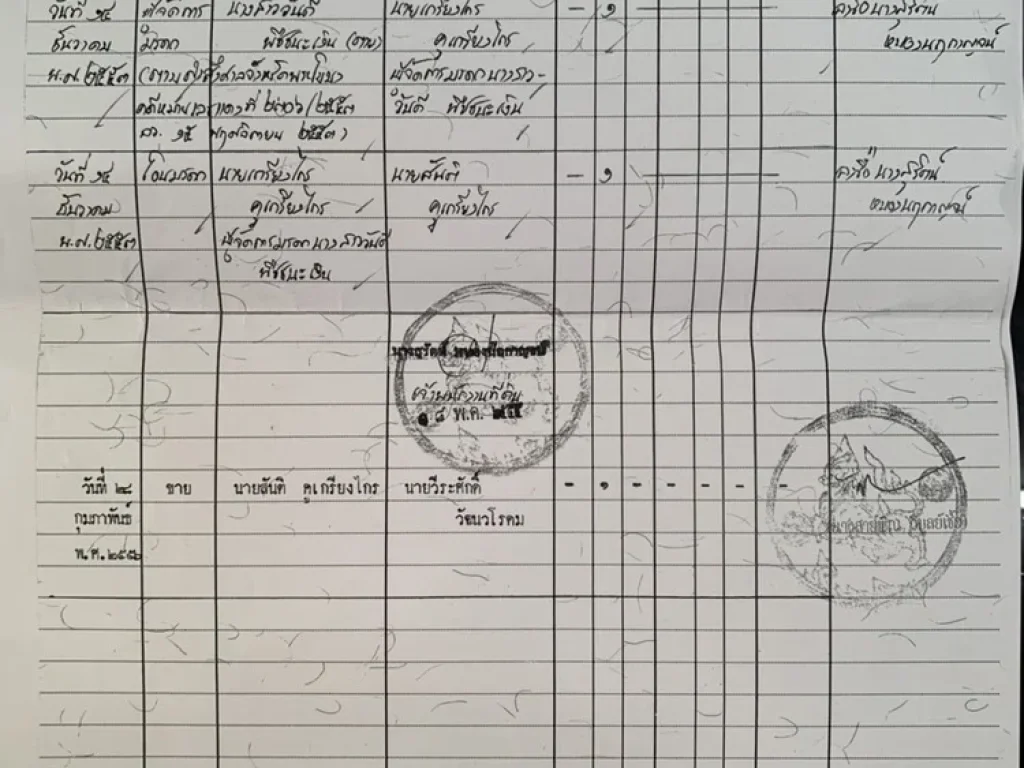 วันที่ ๑๔ ผู้จัดการ นางสาววันดี นายเกรียงไกร - ๑
ธันวาคม มรดก พืชชนะเงิน (ตาย) คูเกรียงไกร
พ.ศ. ๒๕๕๓ (ตามคำสั่งศาล ผู้จัดการมรดกนางสาว-
คดีหมายเลขแดงที่ /๒๕๕๓ วันดี พืชชนะเงิน
ลว. ๑๕ พฤศจิกายน ๒๕๕๓)
วันที่ ๑๔ โอนมรดก นายเกรียงไกร นายสันติ - ๑ ลงชื่อ นางสุรัตน์
ธันวาคม คูเกรียงไกร คูเกรียงไกร
พ.ศ. ๒๕๕๓ ผู้จัดการมรดกนางสาววันดี
พืชชนะเงิน
เจ้าพนักงานที่ดิน
๑๘ พ.ค.
วันที่ ๒๘ ขาย นายสันติ คูเกรียงไกร นายวีระศักดิ์ - ๑ - - - - -
กุมภาพันธ์ วัฒนวโรดม
พ.ศ. ๒๕๕๖